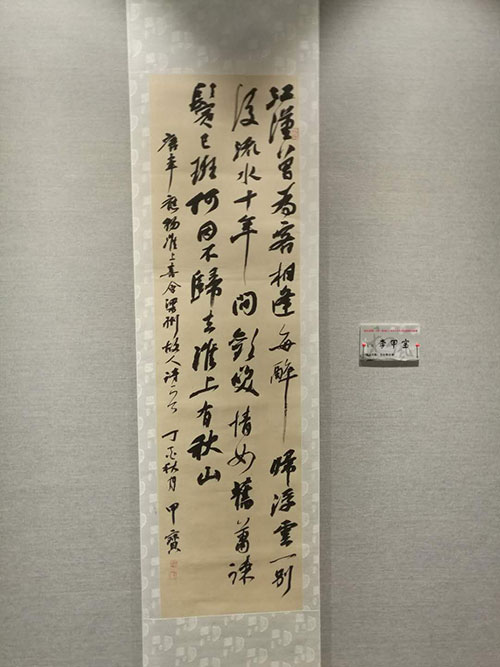 江漢曾為客相逢每醉帰浮雲一别
後流水十年間歡咲情如舊蕭疎
鬢已班何因不歸去淮上有秋山
唐韋應物淮上喜會梁州故人詩一首 丁酉秋月 甲寶
李甲宝